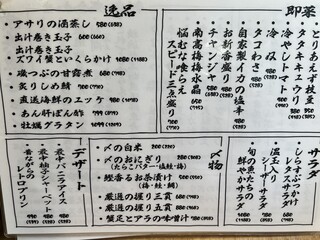 逸品
・アサリの酒蒸し 580(638)
・出汁巻き玉子 600(660)
・出汁巻き玉子
ズワイ蟹といくらかけ 1080(1188)
・磯つぶの甘露煮 680(748)
・炙りしめ鯖 700(770)
・直送海鮮のユッケ 980(1078)
・あん肝ぽん酢 780(858)
・牡蠣グラタン
即菜
とりあえず枝豆
タタキキュウリ
冷やしトマト
冷奴
タコわさ
自家製イカの塩辛
お新香盛り
チャンジャ
南高梅水晶
悩む な喰らえ
スピード三点盛り
サラダ
しらすぶっかけ
レタスサラダ
温玉入り
シーザーサラダ
旬の魚たちの
鮮やかサラダ
〆物
・〆の白米 200(220)
・〆のおにぎり
(たらこバター・塩鮭・梅)
・鰹香るお茶漬け
(梅・鮭・鯛)
・厳選の握り五貫
・厳選の握り三貫
・蟹足とアラの味噌汁
デザート
・最中バニラアイス
・最中柚子シャーベット
・昔ながらの
レトロプリン